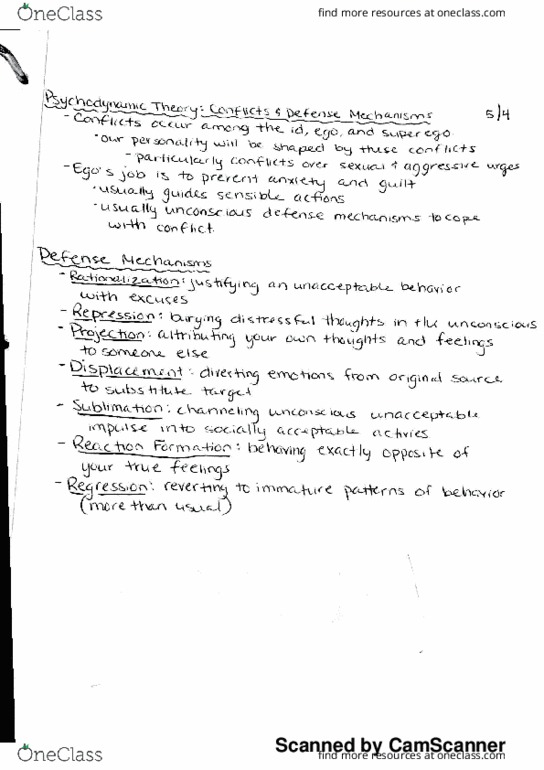 OneClass
find more resources at oneclass.com
Psychodynamic Theory: Conflicts & Defense Mechanisms 5/4
- Conflicts occur among the id, ego, and superego
• our personality will be shaped by these conflicts
- particularly conflicts over sexual & aggressive urges
- Ego's job is to prevent anxiety and guilt
• usually guides sensible actions
• usually unconscious defense mechanisms to cope
with conflict
Defense Mechanisms
- Rationalization: justifying an unacceptable behavior
with excuses
- Repression: burying distressful thoughts in the unconscious
- Projection: attributing your own thoughts and feelings
to someone else
- Displacement: diverting emotions from original source
to substitute target
- Sublimation: channeling unconscious unacceptable
impulse into socially acceptable activies
- Reaction Formation: behaving exactly opposite of
your true feelings
- Regression: reverting to immature patterns of behavior
(more than usual)
Scanned by CamScanner
OneClass
find more resources at oneclass.com